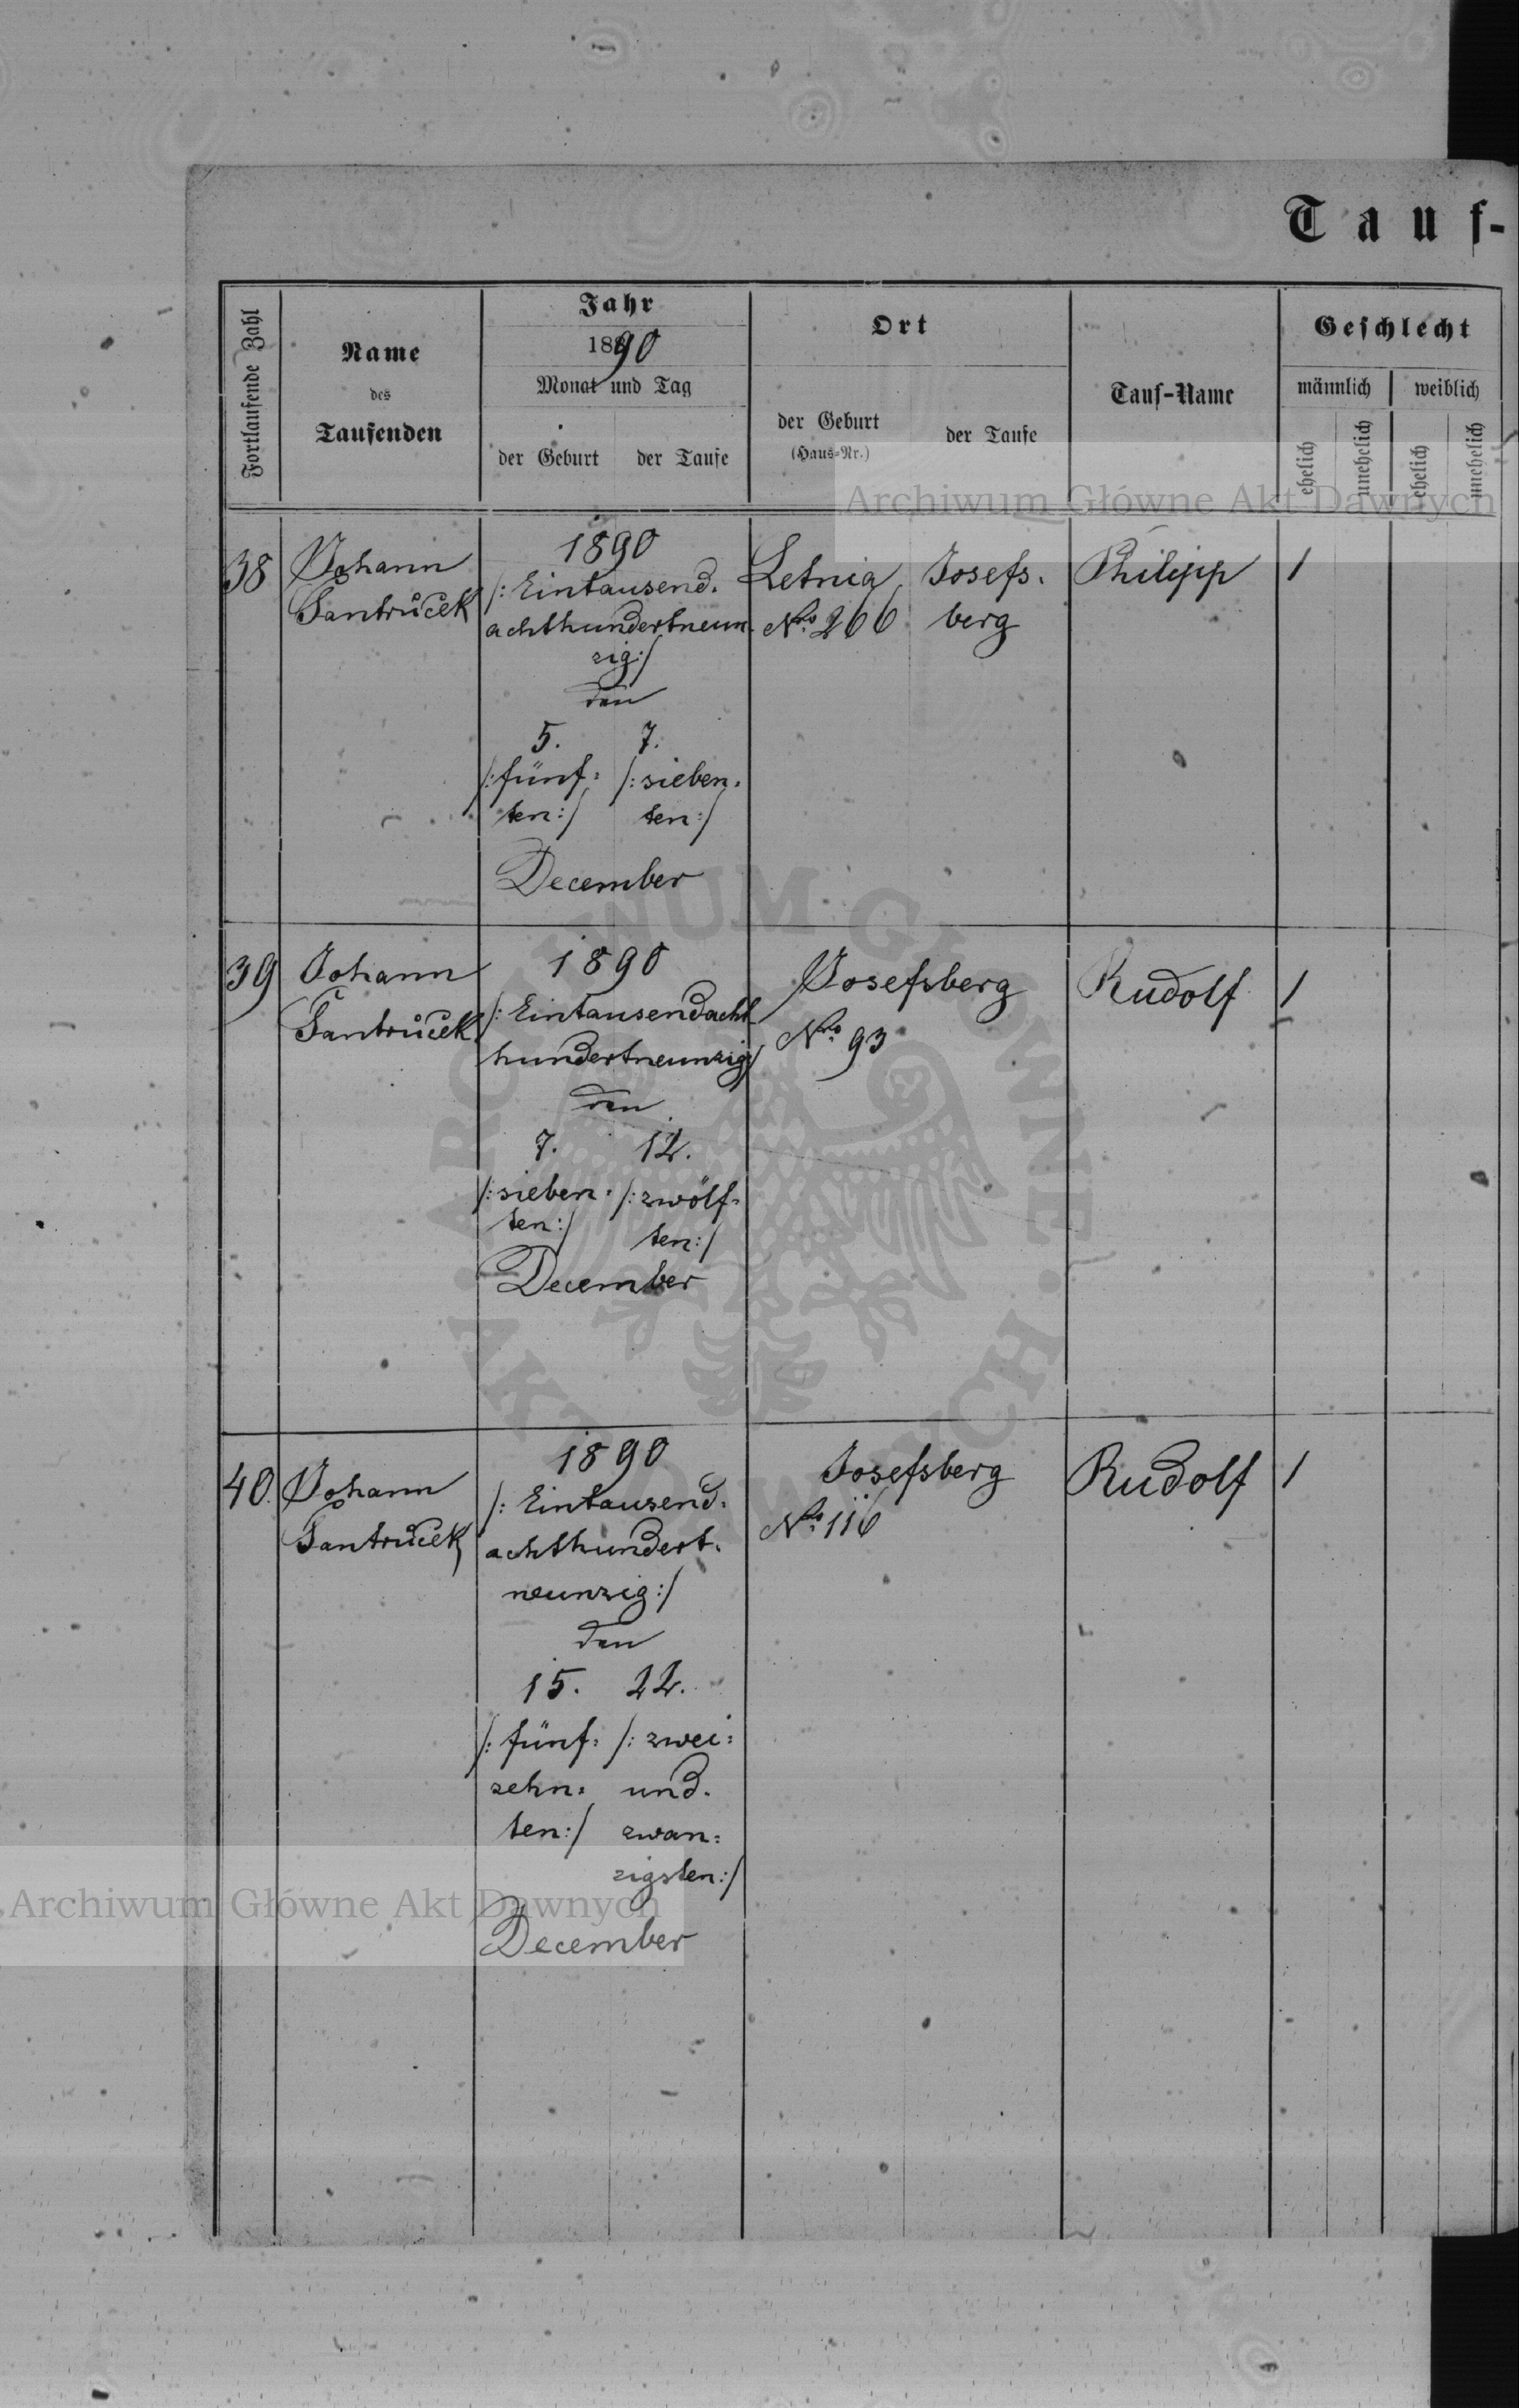 Tauf-
Fortlaufende Zahl
Name
des
Taufenden
Jahr
1890
Monat und Tag
der Geburt
der Taufe
Ort
der Geburt
(Haus-Nr.)
der Taufe
Tauf-Name
Geschlecht
männlich
weiblich
ehelich
unehelich
ehelich
unehelich
Archiwum Główne Akt Dawnych
38
Johann
Santruček
1890
/: Eintausend.
achthundertneun-
zig:/
den
5.
/:fünf=
ten:/
7.
/:sieben=
ten:/
December
Letnia
Nro 266
Josefs.
berg
Philipp
1
39
Johann
Santruček
1890
/: Eintausendacht
hundertneunzig:/
den
7.
/:sieben=
ten:/
12.
/:zwölf=
ten:/
December
Josefsberg
Nro 93
Rudolf
1
40.
Johann
Santruček
1890
/: Eintausend.
achthundert.
neunzig:/
den
15.
/: fünf=
zehn=
ten:/
22.
/: zwei=
und.
zwan=
zigsten:/
December
Josefsberg
Nro 116
Rudolf
1
ARCHIWUM GŁÓWNE · AKT DAWNYCH ·
Archiwum Główne Akt Dawnych